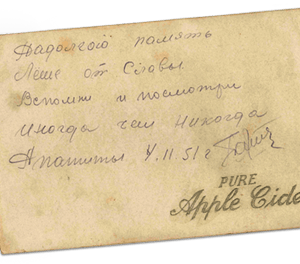 На долгую память
Лёше от Славы
Вспомни и посмотри
иногда чем никогда
Апатиты 4.11.51 г
PURE
Apple Cide